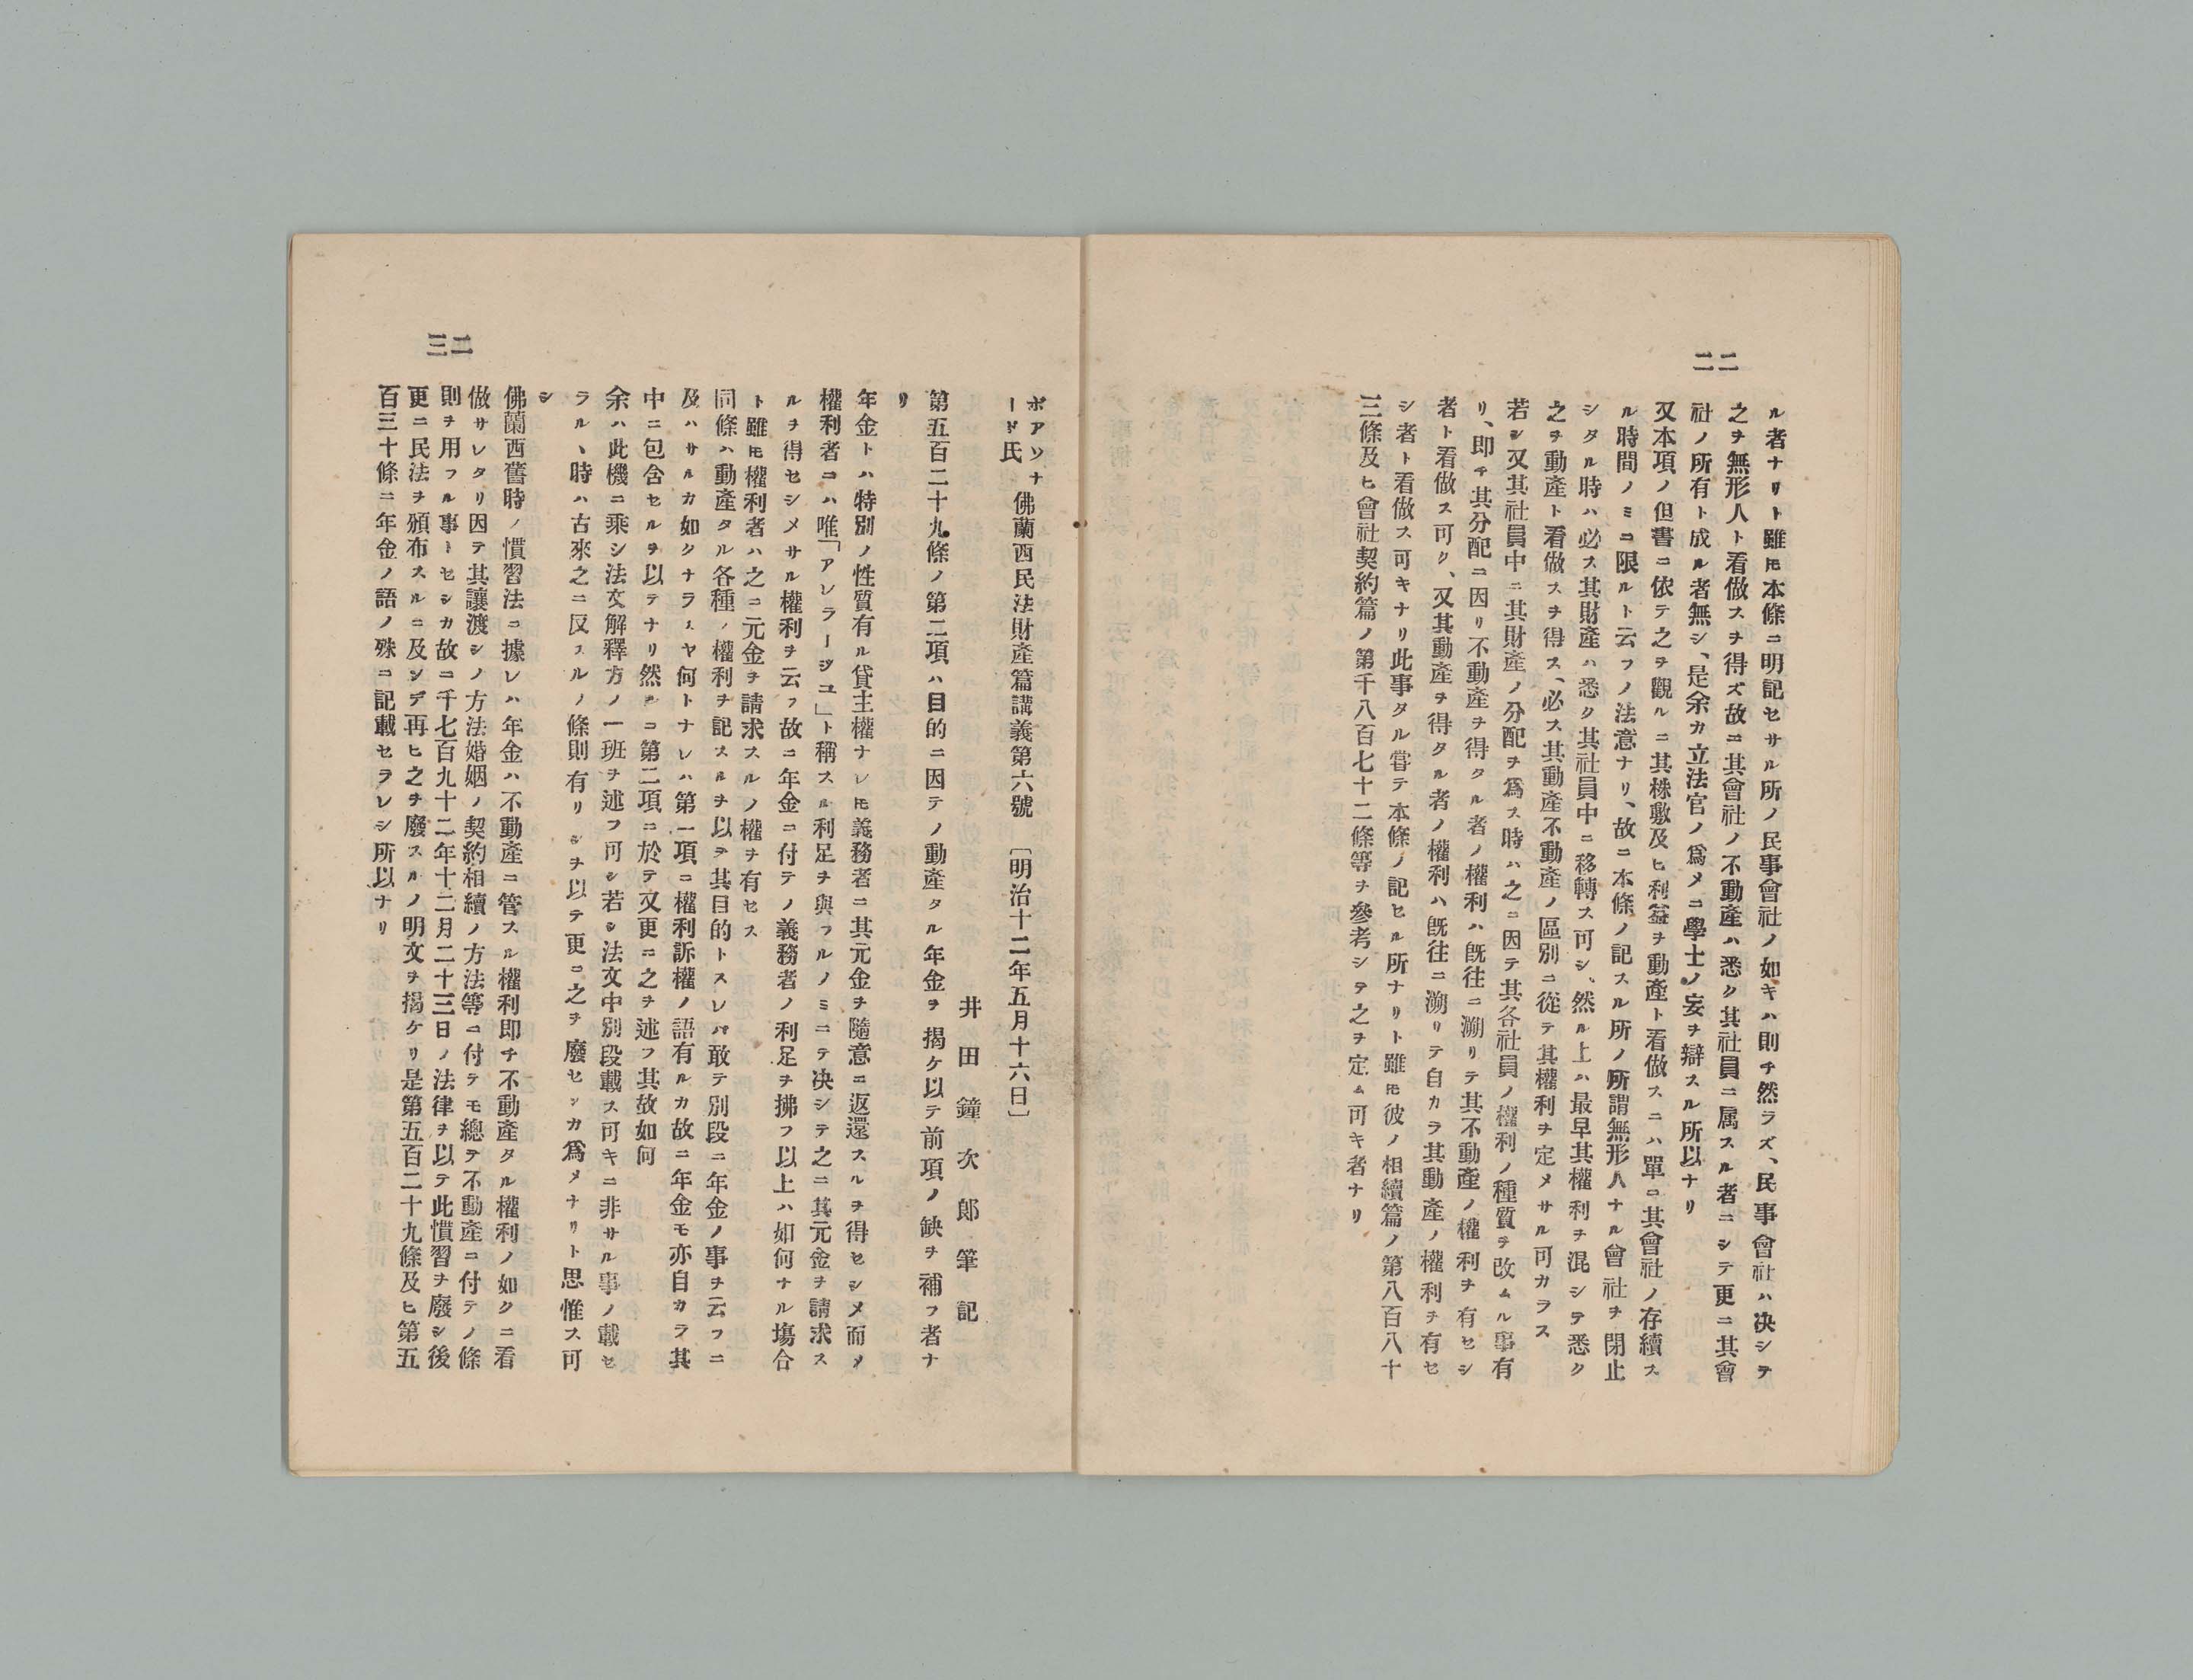 二二
ル者ナリト雖𪜈本條ニ明記セサル所ノ民事會社ノ如キハ則チ然ラズ、民事會社ハ决シテ
之ヲ無形人ト看做スヲ得ズ故ニ其會社ノ不動產ハ悉ク其社員ニ属スル者ニシテ更ニ其會
社ノ所有ト成ル者無シ、是余カ立法官ノ爲メニ學士ノ妄ヲ辯スル所以ナリ
又本項ノ但書ニ依テ之ヲ觀ルニ其株敷及ヒ利益ヲ動產ト看做スニハ單ニ其會社ノ存續ス
ル時間ノミニ限ルト云フノ法意ナリ、故ニ本條ノ記スル所ノ所謂無形人ナル會社ヲ閉止
シタル時ハ必ス其財產ハ悉ク其社員中ニ移轉ス可シ、然ル上ハ最早其權利ヲ混シテ悉ク
之ヲ動產ト看做スヲ得ス、必ス其動產不動產ノ區別ニ從テ其權利ヲ定メサル可カラス
若シ又其社員中ニ其財產ノ分配ヲ爲ス時ハ之ニ因テ其各社員ノ權利ノ種質ヲ改ムル事有
リ、即チ其分配ニ因リ不動產ヲ得タル者ノ權利ハ旣往ニ溯リテ其不動產ノ權利ヲ有セシ
者ト看做ス可ク、又其動產ヲ得タル者ノ權利ハ旣往ニ溯リテ自カラ其動產ノ權利ヲ有セ
シ者ト看做ス可キナリ此事タル甞テ本條ノ記セル所ナリト雖𪜈彼ノ相續篇ノ第八百八十
三條及ヒ會社契約篇ノ第千八百七十二條等ヲ參考シテ之ヲ定ム可キ者ナリ
二三
ボアソナード氏 佛蘭西民法財產篇講義第六號 〔明治十二年五月十六日〕
井田鐘次郎筆記
第五百二十九條ノ第二項ハ目的ニ因テノ動產タル年金ヲ揭ケ以テ前項ノ缺ヲ補フ者ナ
リ
年金トハ特別ノ性質有ル貸主權ナレ𪜈義務者ニ其元金ヲ隨意ニ返還スルヲ得セシメ而メ
權利者ニハ唯「アレラージユ」ト稱スル利足ヲ與フルノミニテ决シテ之ニ其元金ヲ請求ス
ルヲ得セシメサル權利ヲ云フ故ニ年金ニ付テノ義務者ノ利足ヲ拂フ以上ハ如何ナル塲合
ト雖𪜈權利者ハ之ニ元金ヲ請求スルノ權ヲ有セス
同條ハ動產タル各種ノ權利ヲ記スルヲ以テ其目的トスレバ敢テ別段ニ年金ノ事ヲ云フニ
及ハサルカ如クナラスヤ何トナレハ第一項ニ權利訴權ノ語有ルカ故ニ年金モ亦自カラ其
中ニ包含セルヲ以テナリ然ルニ第二項ニ於テ又更ニ之ヲ述フ其故如何
余ハ此機ニ乘シ法文解釋方ノ一班ヲ述フ可シ若シ法文中別段載ス可キニ非サル事ノ載セ
ラルヽ時ハ古來之ニ反スルノ條則有リシヲ以テ更ニ之ヲ廢センカ爲メナリト思惟ス可
シ
佛蘭西舊時ノ慣習法ニ據レハ年金ハ不動產ニ管スル權利即チ不動產タル權利ノ如クニ看
做サレタリ因テ其讓渡シノ方法婚姻ノ契約相續ノ方法等ニ付テモ總テ不動產ニ付テノ條
則ヲ用フル事トセシカ故ニ千七百九十二年十二月二十三日ノ法律ヲ以テ此慣習ヲ廢シ後
更ニ民法ヲ頒布スルニ及ンデ再ヒ之ヲ廢スルノ明文ヲ揭ケリ是第五百二十九條及ヒ第五
百三十條ニ年金ノ語ノ殊ニ記載セラレシ所以ナリ